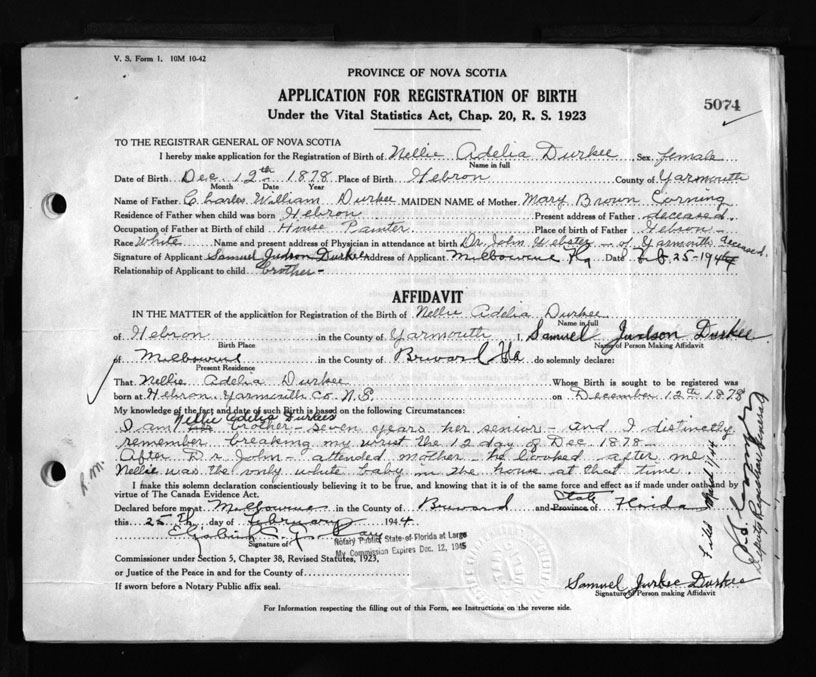 V. S. Form 1. 10M 10-42
PROVINCE OF NOVA SCOTIA
APPLICATION FOR REGISTRATION OF BIRTH
5074
Under the Vital Statistics Act, Chap. 20, R. S. 1923
TO THE REGISTRAR GENERAL OF NOVA SCOTIA
I hereby make application for the Registration of Birth of Nellie Adelia Durkee Sex female
Name in full
Date of Birth Dec 12th 1878 Place of Birth Hebron County of Yarmouth
Month Date Year
Name of Father Charles William Durkee MAIDEN NAME of Mother Mary Brown Corning
Residence of Father when child was born Hebron Present address of Father deceased
Occupation of Father at Birth of child House Painter Place of birth of Father Hebron
Race White Name and present address of Physician in attendance at birth Dr. John Webster - of Yarmouth deceased.
Signature of Applicant Samuel Judson Durkee Address of Applicant Melbourne Fla Date Feb. 25-1944
Relationship of Applicant to child Brother-
AFFIDAVIT
IN THE MATTER of the application for Registration of the Birth of Nellie Adelia Durkee
Name in full
of Hebron in the County of Yarmouth I, Samuel Judson Durkee
Birth Place Name of Person Making Affidavit
of Melbourne in the County of Brevard Fla do solemnly declare:
Present Residence
That Nellie Adelia Durkee Whose Birth is sought to be registered was
born at Hebron Yarmouth Co. N.S. on December 12th 1878
My knowledge of the fact and date of such Birth is based on the following Circumstances:
Nellie Adelia Durkees
I am brother - seven years her senior - and I distinctly
remember breaking my wrist the 12 day of Dec 1878 -
After Dr John - attended mother - he looked after me
Nellie was the only white baby in the house at that time.
R.M.
I make this solemn declaration conscientiously believing it to be true, and knowing that it is of the same force and effect as if made under oath and by
virtue of The Canada Evidence Act.
State
Declared before me at Melbourne in the County of Brevard and Province of Florida
this 25th day of February 1944
Signature of
Notary Public State of Florida at Large
My Commission Expires Dec. 12, 1945
Commissioner under Section 5, Chapter 38, Revised Statutes, 1923,
or Justice of the Peace in and for the County of
If sworn before a Notary Public affix seal.
Samuel Durkee
Signature of Person making Affidavit
For Information respecting the filling out of this Form, see Instructions on the reverse side.
Filed March 1/44
Deputy Registrar General